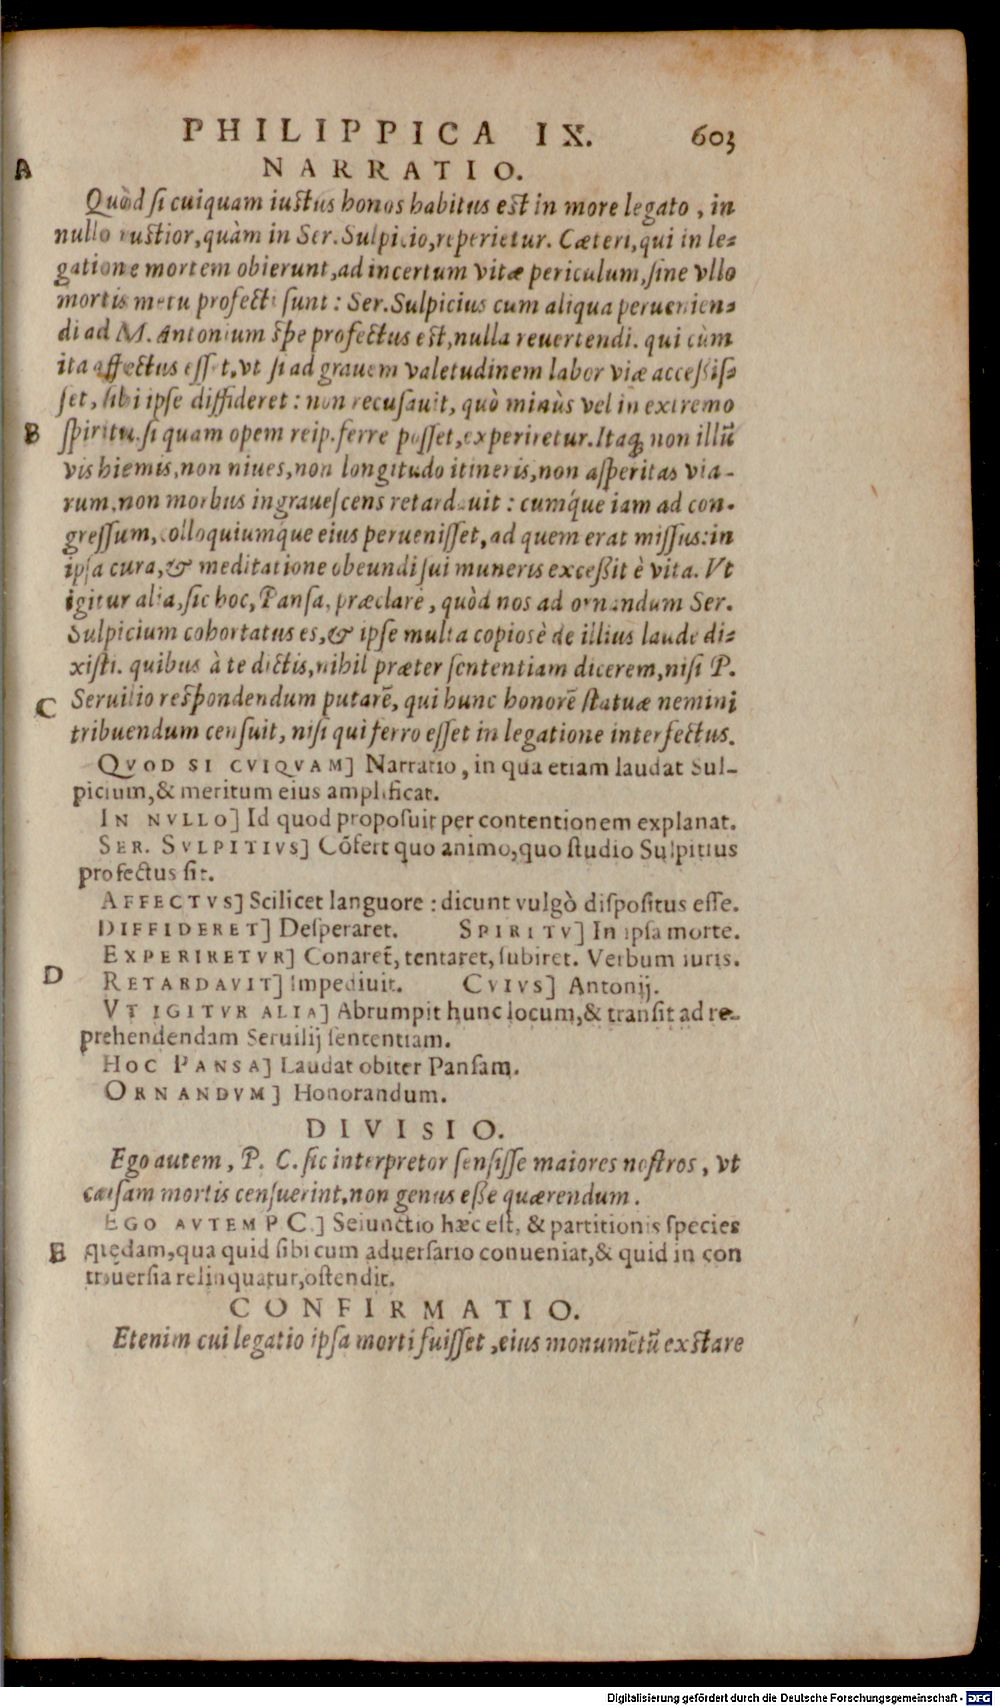 PHILIPPICA IX. 603
A NARRATIO.
Quòd si cuiquam iustus honos habitus est in more legato, in
nullo iustior, quàm in Ser. Sulpicio, reperietur. Cæteri, qui in le-
gatione mortem obierunt, ad incertum vitæ periculum, sine vllo
mortis metu profecti sunt: Ser. Sulpicius cum aliqua peruenien-
di ad M. Antonium spe profectus est, nulla reuertendi. qui cùm
ita affectus esset, vt si ad grauem valetudinem labor viæ accessis-
set, sibi ipse diffideret: non recusauit, quò minùs vel in extremo
B spiritu, si quam opem reip. ferre posset, experiretur. Itaq; non illũ
vis hiemis, non niues, non longitudo itineris, non asperitas via-
rum, non morbus ingrauescens retardauit: cumq́ue iam ad con-
gressum, colloquiumq́ue eius peruenisset, ad quem erat missus: in
ipsa cura, & meditatione obeundi sui muneris excessit è vita. Vt
igitur alia, sic hoc, Pansa, præclarè, quòd nos ad ornandum Ser.
Sulpicium cohortatus es, & ipse multa copiosè de illius laude di-
xisti. quibus à te dictis, nihil præter sententiam dicerem, nisi P.
C Seruilio respondendum putarẽ, qui hunc honorẽ statuæ nemini
tribuendum censuit, nisi qui ferro esset in legatione interfectus.
QVOD SI CVIQVAM] Narratio, in qua etiam laudat Sul-
picium, & meritum eius amplificat.
IN NVLLO] Id quod proposuit per contentionem explanat.
SER. SVLPITIVS] Cõfert quo animo, quo studio Sulpitius
profectus sit.
AFFECTVS] Scilicet languore: dicunt vulgò dispositus esse.
DIFFIDERET] Desperaret. SPIRITV] In ipsa morte.
EXPERIRETVR] Conaret̃, tentaret, subiret. Verbum iuris.
D RETARDAVIT] Impediuit. CVIVS] Antonij.
VT IGITVR ALIA] Abrumpit hunc locum, & transit ad re-
prehendendam Seruilij sententiam.
HOC PANSA] Laudat obiter Pansam.
ORNANDVM] Honorandum.
DIVISIO.
Ego autem, P. C. sic interpretor sensisse maiores nostros, vt
causam mortis censuerint, non genus esse quærendum.
EGO AVTEM P C.] Seiunctio hæc est, & partitionis species
E quędam, qua quid sibi cum aduersario conueniat, & quid in con
trouersia relinquatur, ostendit.
CONFIRMATIO.
Etenim cui legatio ipsa morti fuisset, eius monumẽtũ exstare
Digitalisierung gefördert durch die Deutsche Forschungsgemeinschaft - DFG